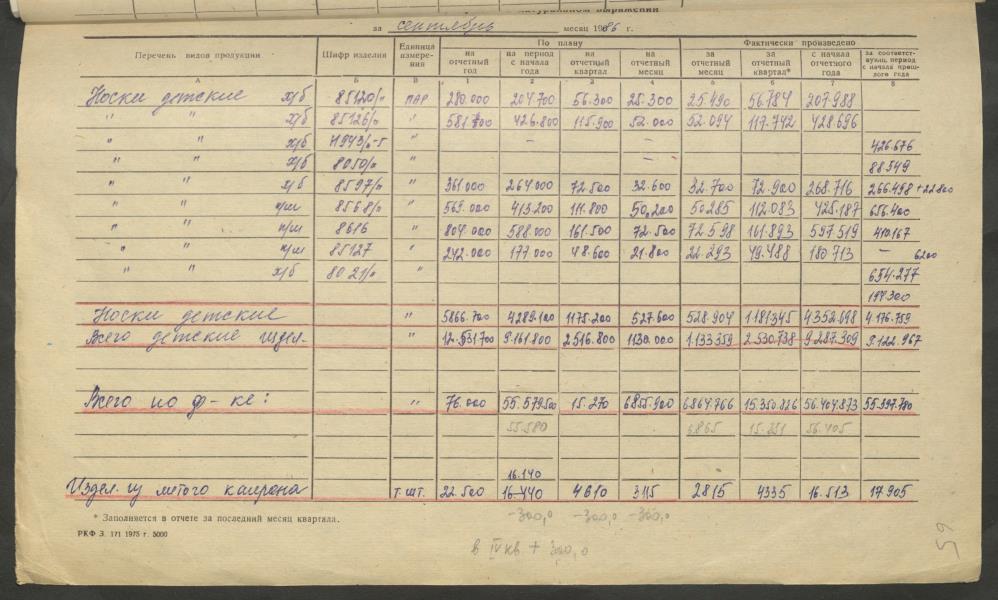 натуральном выражении
за сентябрь месяц 1986 г.
Перечень видов продукции Шифр изделия Единица измерения По плану Фактически произведено
на отчетный год на период с начала года на отчетный квартал на отчетный месяц за отчетный месяц за отчетный квартал* с начала отчетного года за соответствующ. период с начала прошлого года
А Б В 1 2 3 4 5 6 7 8
Носки детские х/б 85120/0 пар 280.000 204.700 56.300 25.300 25.490 56.784 207.988
" " х/б 85126/0 " 426.800 115.900 52.000 52.094 117.742 428.696
" " х/б " — — 426.676
" " х/б 8050/0 " — 88.549
" " х/б 8597/0 " 361.000 264.000 72.500 32.600 32.700 72.900 268.716 266.498 +22800
" " п/ш 8568/0 " 569.000 413.200 111.800 50.200 50.285 112.083 425.187 656.400
" " п/ш 8686 " 804.000 588.000 161.500 72.500 72.598 161.893 597.519 410.167
" " п/ш 85127 " 242.000 177.000 48.600 21.800 22.293 49.488 180.713 — 6200
" " х/б 8021/0 " 654.277
198.300
Носки детские " 5866.700 4289.100 1175.200 527.600 528.904 1181345 4352.098 4176.759
Всего детские издел. " 12.531700 9.161.800 2516.800 1130.000 1.133359 2.530.738 9.287.309 9.122.967
Всего по ф-ке: " 76.000 55.579.500 15.270 6855.900 6864.766 15.350.826 56.404.873 55.397.780
55.580 6865 15.351 56.405
16.140
Издел. из литого капрона т.шт. 22.500 16.440 4610 3115 2815 4335 16.513 17.905
* Заполняется в отчете за последний месяц квартала. -300,0 -300,0 -300,0
РКФ З. 171 1975 г. 5000
в IV кв + 300,0
59